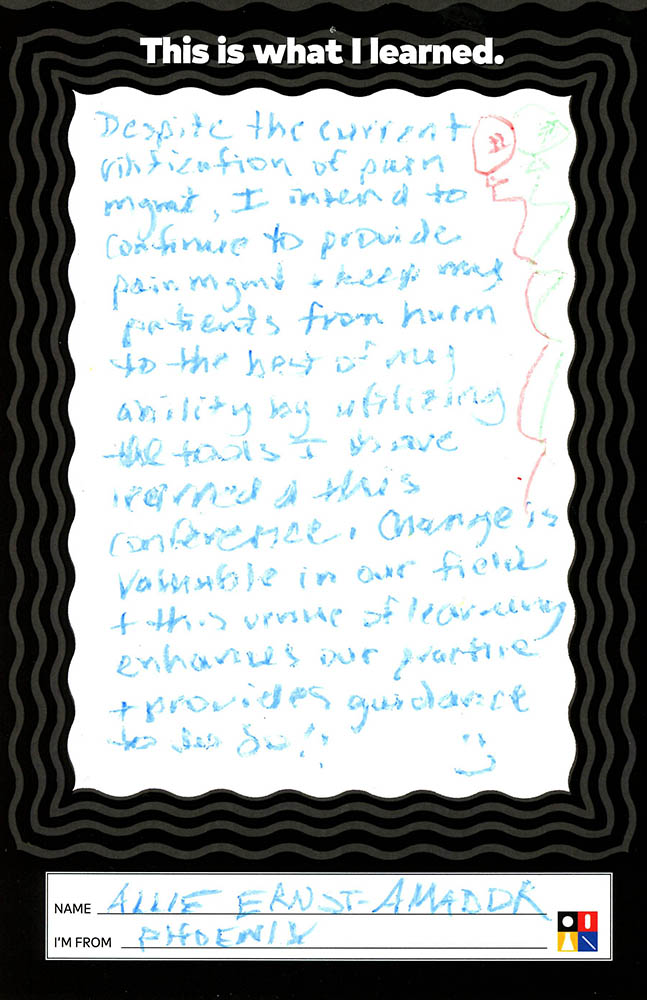 This is what I learned.
Despite the current
vilification of pain
mgmt, I intend to
continue to provide
pain mgmt + keep my
patients from harm
to the best of my
ability by utilizing
the tools I have
learned @ this
conference. Change is
valuable in our field
+ this venue of learning
enhances our practice
+ provides guidance
to do so!!
NAME ALLIE ERNST-AMADOR
I'M FROM PHOENIX